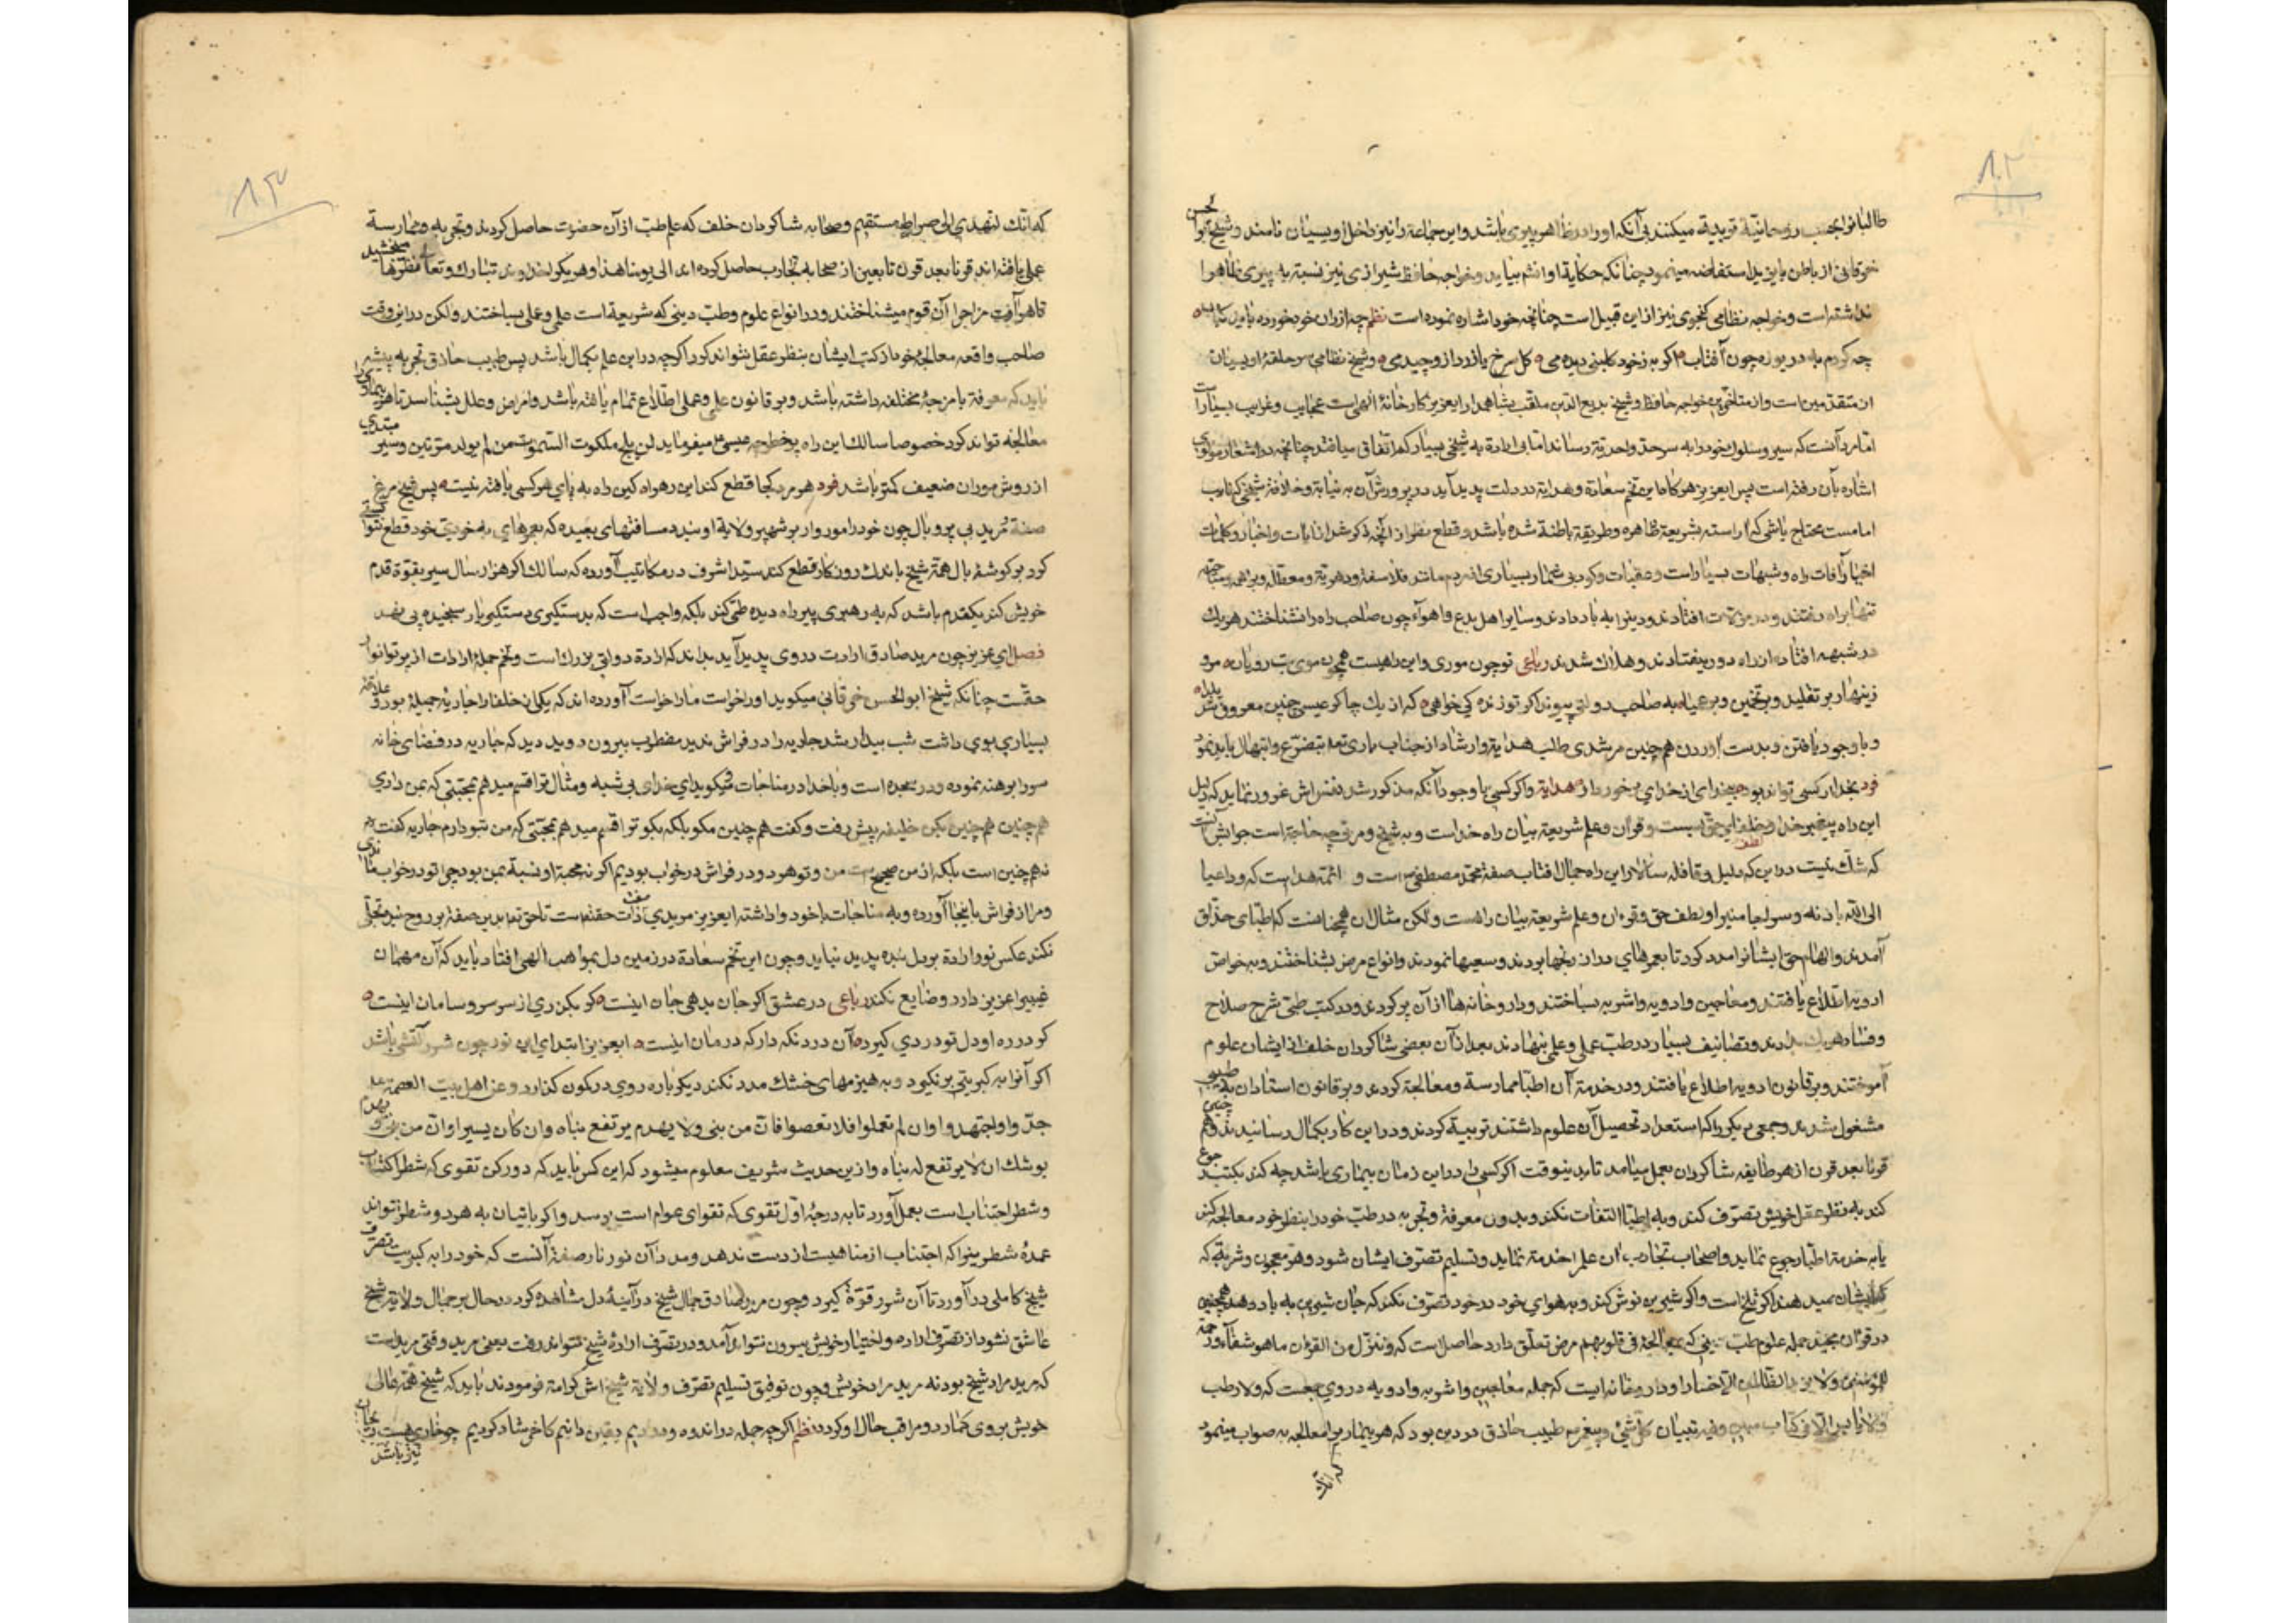 ٨٢
طالبانرا بحسب روحانیة تربیة میکنند بی آنکه او را در ظاهر پیری باشد و این جماعة را نیز داخل اویسیان نامند و شیخ ابو الحسن
خرقانی از باطن بایزید استفاضه مینمود چنانکه حکایة او انشم بیاید و خواجه حافظ شیرازی نیز نسبة به پیری ظاهرا
نداشته است و خواجه نظامی کنجوی نیز از این قبیل است چنانچه خود اشاره نموده است نظم چه از ران خود خورده باید
چه کردم به دریوزه چون آفتاب کل سرخ یا زرد از و چیدی و شیخ نظامی سر حلقهٔ اویسیان
از متقدمین است و از متاخرین خواجه حافظ و شیخ بدیع الدین ملقب بشاهمدار ایعزیز کارخانهٔ الهی است عجایب و غرایب بسیار است
اما مرد آنست که سیر و سلوک خود را به سرحد واحدیة رساند اما بی ارادة به شیخی بسیار کم اتفاق میافتد چنانچه در اشعار مولوی
اشاره بآن رفته است پس ایعزیز هرکاه این تخم سعادة و هدایة در دلت پدید آید در پرورش آن به نیابة و خلافة شیخی که نایب
امامست محتاج باشی که آراسته بشریعة ظاهره و طریقة باطنة شده باشد و قطع نظر از آنچه ذکر شد از آیات و اخبار و کلمات
اخیار آفات راه و شبهات بسیار است و عقبات و کوه بی شمار بسیاری از مردم مانند فلاسفه و دهریة و معطله و براهمه
تنها براه رفتند و در مهلکات افتادند و دینرا به باد دادند و سایر اهل بدع و اهوآء چون صاحب راه را نشناختند هر یک
در شبهه افتاده از راه دور بیفتادند و هلاک شدند رباعی تو چون موری و این راهیست همچون موی بت رویان مرو
زینهار بر تقلید و بر تخمین و بر عمیا به صاحب دولتی پیوند اکر تو زنده کی خواهی که از یک چاکر عیسی چنین معروف شد یلدا
و با وجود یافتن و بدست آوردن همچنین مرشدی طلب هدایة و ارشاد از جناب باری تع به تضرع و ابتهال باید نمود
فرد بخدا ار کسی تواند بود بیخدای از خدای برخوردار هدایة و اکر کسی با وجود آنکه مذکور شد نفس اش غرور نماید که دلیل
این راه پیغمبر خدا و خلفای حق بس است و قرآن و علم شریعة بیان راه خداست و به شیخ و مربی چه حاجة است جوابش آنست
که شک نیست در این که دلیل و قافله سالار این راه جمال افتاب صفة محمد مصطفی است و ائمة هداست که و داعیا
الی الله باذنه و سراجا منیرا و لطف حق و قرءان و علم شریعة بیان راهست و لکن مثال ان همچنانست که اطبای حذاق
آمدند و الهام حق ایشانرا مدد کرد تا بعمرهای دراز رنجها بردند و سعیها نمودند و انواع مرض بشناختند و به خواص
ادویه اطلاع یافتند و معاجین و ادویه و اشربه بساختند و داروخانه ها از آن پر کردند و در کتب طبی شرح صلاح
و فساد هر یک بدادند و تصانیف بسیار در طب عملی و علمی بنهادند بعد از آن بعضی شاکردان خلف از ایشان علوم
آموختند و بر قانون ادویه اطلاع یافتند و در خدمة آن اطبا ممارسة و معالجة کردند و بر قانون استادان به طبیبی
مشغول شدند و جمعی دیکر را که استعداد تحصیل آن علوم داشتند تربیة کردند و در این کار بکمال رسانیدند و همچنین
قرنا بعد قرن از هر طایفه شاکردان بعمل میامد تا بدینوقت اکر کسی را در این زمان بیماری باشد چه کند بکتب رجوع
کند به نظر عقل خویش تصرف کند و به اطبا التفات نکند و بدون معرفة و تجربه در طب خود را بنظر خود معالجه کند
یا به خدمة اطبا رجوع نماید و اصحاب تجارب ان علم را خدمة نماید و تسلیم تصرف ایشان شود و هر معجون و شربة که
ایشان میدهند اکر تلخ است و اکر شیرین نوش کند و به هوای خود در خود تصرف نکند که جان شیرین به باد دهد همچنین
در قرآن مجید جمله علوم طب دینی که بمعالجهٔ فی قلوبهم مرض تعلق دارد حاصل است که و ننزل من القرءان ما هو شفاء و رحمة
للمؤمنین و لا یزید الظالمین الا خسارا و داروخانه ایست که جمله معاجین و اشربه و ادویه در وی جمعست که و لا رطب
و لا یابس الا فی کتاب مبین و فیه تبیان کل شئ و پیغمبر طبیب حاذق در دین بود که هر بیمار را معالجه به صواب مینمود
که انک
٨٣
که انک لتهدی الی صراط مستقیم و صحابه شاکردان خلف که علم طب از آن حضرت حاصل کردند و تجربه و ممارسة
عملی یافته اند قرنا بعد قرن تابعین از صحابه تجارب حاصل کرده اند الی یومنا هذا و هر یکرا خداوند تبارک و تعالی نظرها میبخشید
تا هر آفت مزاج را آن قوم میشناختند و در انواع علوم و طب دینی که شریعة است علمی و عملی بساختند و لکن در این وقت
صاحب واقعه معالجهٔ خود از کتب ایشان بنظر عقل نتواند کرد اکرچه در این علم بکمال باشد پس طبیب حاذق تجربه پیشه
باید که معرفة بامزجهٔ مختلفه داشته باشد و بر قانون علمی و عملی اطلاع تمام یافته باشد و امراض و علل بشناسد تا هر بیماری را
معالجه تواند کرد خصوصا سالک این راه پرخطر چه عیسی ع میفرماید لن یلج ملکوت السموات من لم یولد مرتین و سیر مبتدی
از روش موران ضعیف کمتر باشد فرد هر مرد کجا قطع کند این ره راه کین راه به پای هر کسی بافته نیست پس شیخ مرغ
صفة مرید بی پر و بال چون خود را موروار بر شهپر ولایة او بندد مسافتهای بعیده که بعمرهای به خودی خود قطع نتوانستی
کرد بر کوشهٔ بال همة شیخ باندک روزکار قطع کند سید اشرف در مکاتیب آورده که سالک اکر هزار سال سیر بقوة قدم
خویش کند یکقدم باشد که به رهبری پیر راه دیده طی کند بلکه واجب است که بدستکیری دستکیر یار سنجیده پی نهد
فصل ای عزیز چون مرید صادق ارادت در وی پدید آید بداند که ارادة دولتی بزرک است و تخم جملهٔ ارادات از پرتو انوار
حقست چنانکه شیخ ابو الحسن خرقانی میکوید او را خواست ما را خواست آورده اند که یکی از خلفا را جاریهٔ جمیله بود و علاقه
بسیاری بوی داشت شب بیدار شد جاریه را در فراش ندید مضطرب بیرون دوید دید که جاریه در فضای خانه
سر را برهنه نموده و در سجده است و با خدا در مناجات و میکوید ای خدای بی شبه و مثال ترا قسم میدهم بمحبتی که بمن داری
هم چنین هم چنین بکن خلیفه پیش رفت و کفت هم چنین مکو بلکه بکو ترا قسم میدهم بمحبتی که من بتو دارم جاریه کفت
نه هم چنین است بلکه از من صحیح است من و تو هر دو در فراش در خواب بودیم اکر نه محبة او نسبة بمن بود چرا تو در خواب ماندی
و مرا از فراش باینجا آورده و به مناجات با خود واداشته ایعزیز مریدی صفت ذات حقست تا حق تع بدین صفة بر روح بنده تجلی
نکند عکس نور ارادة بر دل بنده پدید نیاید و چون این تخم سعادة در زمین دل بمواهب الهی افتاد باید که آن مهمان
غیبی را عزیز دارد و ضایع نکند رباعی در عشق اکر جان بدهی جان اینست کو بکذری از سر سر و سامان اینست
کر در ره او دل تو دردی کیرد آن درد نکه دار که درمان اینست ایعزیز ابتدای این نور چون شرر آتشی باشد
اکر آنرا به کبریتی برنکیرد و به هیزمهای خشک مدد نکند دیکر باره روی در کمون کذارد و عن اهل بیت العصمة
جدوا و اجتهدوا و ان لم تعملوا فلا تعصوا فان من یبنی و لا یهدم یرتفع بناه و ان کان یسیرا و ان من یبنی و یهدم
یوشک ان لا یرتفع له بناء و از این حدیث شریف معلوم میشود که این کس باید که دو رکن تقوی که شطر اکتساب
و شطر اجتناب است بعمل آورد تا به درجهٔ اول تقوی که تقوای عوام است برسد و اکر باتیان به هر دو شطر نتواند
عمدهٔ شطرینرا که اجتناب از مناهیست از دست ندهد و مدد آن نور نار صفة آنست که خود را به کبریت تصرف
شیخ کاملی در آورد تا آن شرر قوة کیرد و چون مرید صادق جمال شیخ در آینهٔ دل مشاهده کرد در حال بر جمال ولایة شیخ
عاشق نشود از تصرف اراده و اختیار خویش بیرون نتواند آمد و در تصرف ارادهٔ شیخ نتواند رفت یعنی مرید وقتی مرید است
که مرید مراد شیخ بود نه مرید مراد خویش و چون توفیق تسلیم تصرف ولایة شیخ اش کرامة فرمودند باید که شیخ همة عالی
خویش بر وی کمارد و مراقب حال او کردد نظم اکرچه جمله در اندوه و دردیم یقین دانیم کاخر شاد کردیم چو خاری هست ریحان
نیز باشد